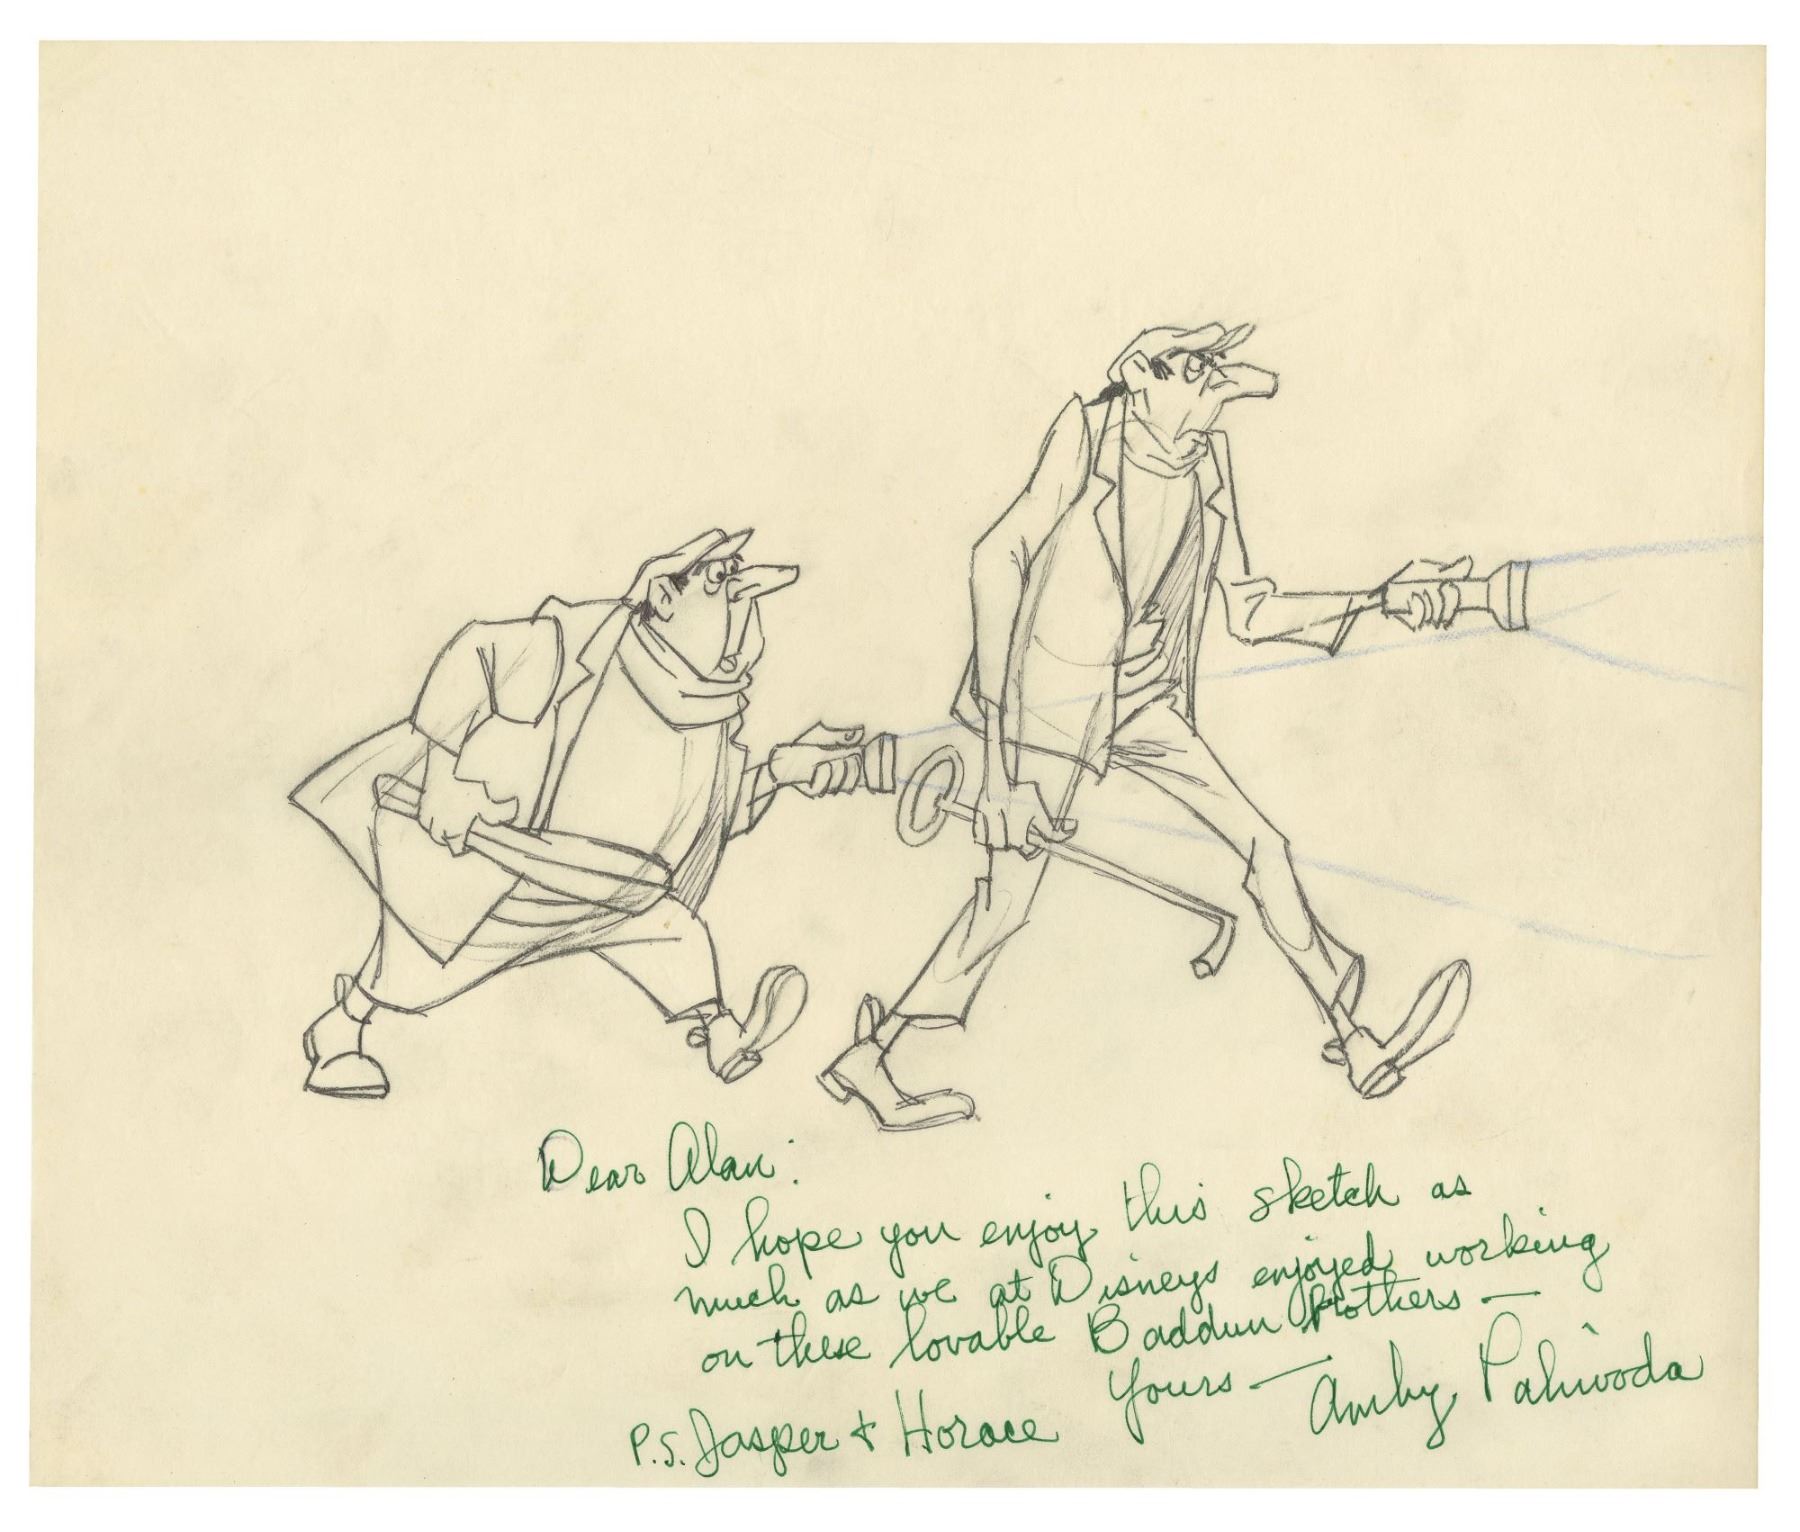 Dear Alan:
I hope you enjoy this sketch as
much as we at Disneys enjoyed working
on these lovable Baddun Brothers —
Yours — Amby Paliwoda
P.S. Jasper & Horace